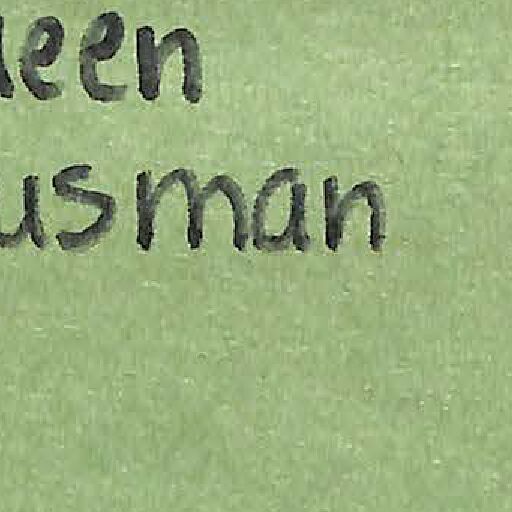 een
usman